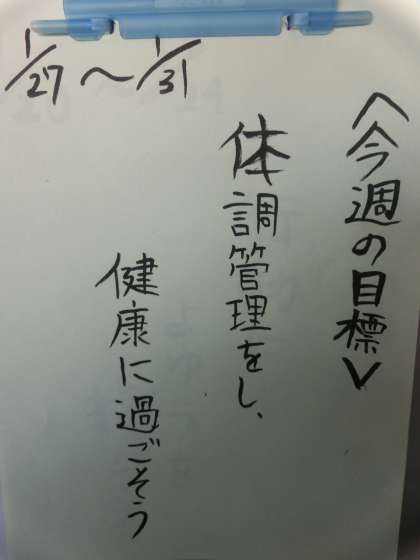 1/27〜1/31
〈今週の目標〉
体調管理をし、
健康に過ごそう